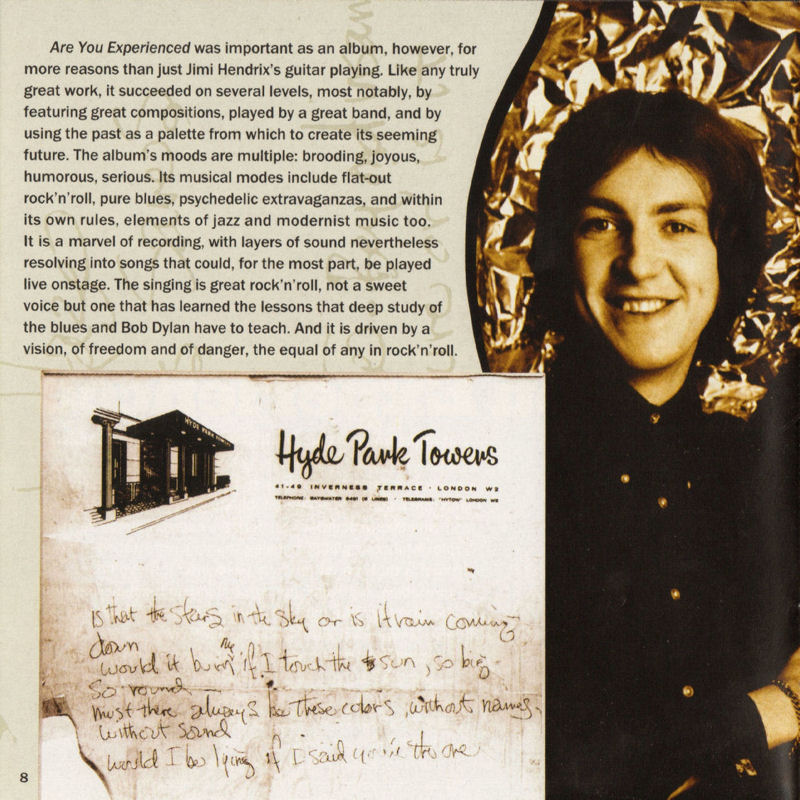 Are You Experienced was important as an album, however, for
more reasons than just Jimi Hendrix's guitar playing. Like any truly
great work, it succeeded on several levels, most notably, by
featuring great compositions, played by a great band, and by
using the past as a palette from which to create its seeming
future. The album's moods are multiple: brooding, joyous,
humorous, serious. Its musical modes include flat-out
rock'n'roll, pure blues, psychedelic extravaganzas, and within
its own rules, elements of jazz and modernist music too.
It is a marvel of recording, with layers of sound nevertheless
resolving into songs that could, for the most part, be played
live onstage. The singing is great rock'n'roll, not a sweet
voice but one that has learned the lessons that deep study of
the blues and Bob Dylan have to teach. And it is driven by a
vision, of freedom and of danger, the equal of any in rock'n'roll.
HYDE PARK TOWERS
Hyde Park Towers
41-49 INVERNESS TERRACE · LONDON W2
TELEPHONE: BAYSWATER 9461 (5 LINES) · TELEGRAMS: "HYTOW" LONDON W2
is that the stars in the sky or is it rain coming
down
would it burn me if I touch the sun, so big
so round
must there always be these colors, without names,
without sound
would I be lying if I said you're the one
8